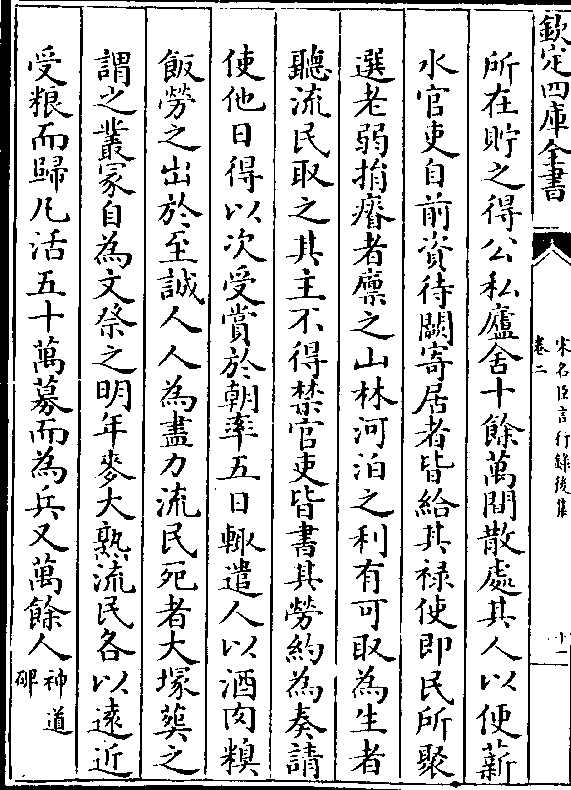 欽定四庫全書
宋名臣言行錄後集
卷二
十二
所在貯之得公私廬舍十餘萬間散處其人以便薪
水官吏自前資待闕寄居者皆給其祿使即民所聚
選老弱㨂瘠者廪之山林河泊之利有可取為生者
聽流民取之其主不得禁官吏皆書其勞約為奏請
使他日得以次受賞於朝率五日輙遣人以酒肉糗
飯勞之出於至誠人人為盡力流民死者大塚葬之
謂之叢冡自為文祭之明年麥大熟流民各以遠近
受粮而歸凡活五十萬募而為兵又萬餘人神道
碑